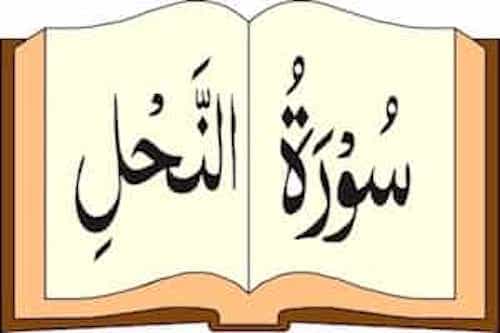 سُوْرَةُ النَّحْلِ